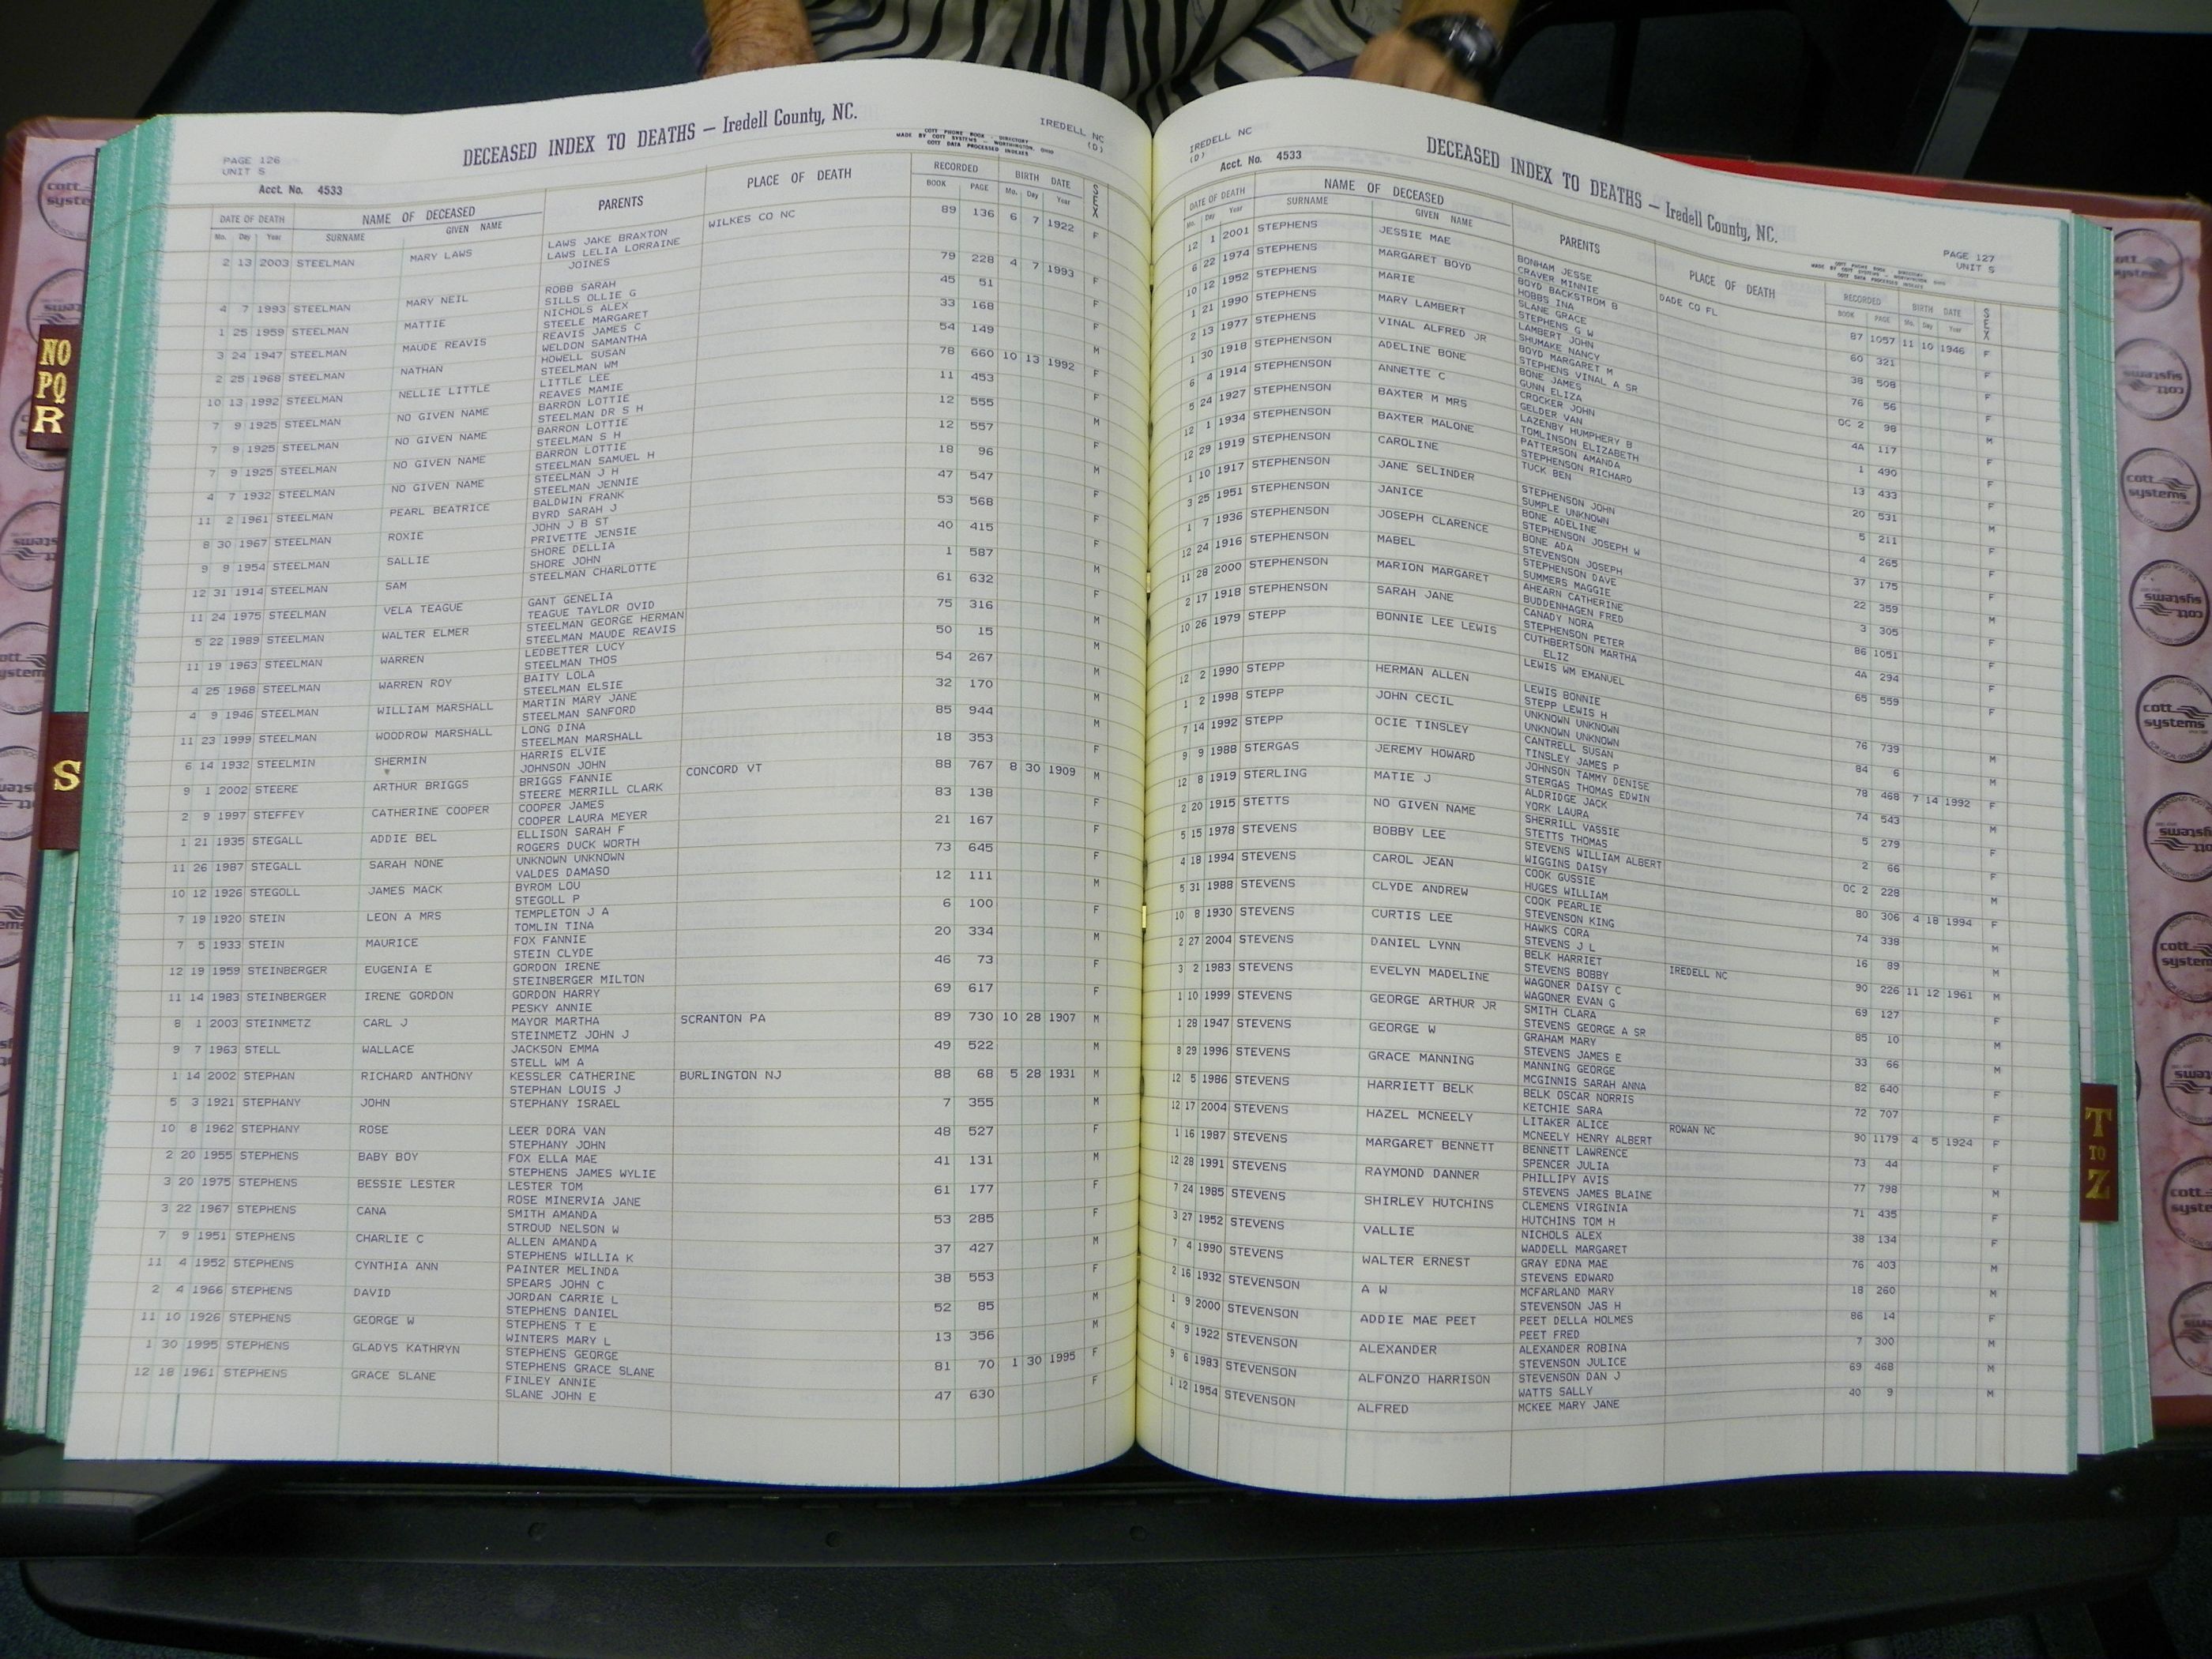 PAGE 126
UNIT S
DECEASED INDEX TO DEATHS — Iredell County, NC.
COTT PHONE BOOK - DIRECTORY
MADE BY COTT SYSTEMS - WORTHINGTON, OHIO
COTT DATA PROCESSED INDEXES
IREDELL NC
(D)
Acct. No. 4533
DATE OF DEATH NAME OF DECEASED PARENTS PLACE OF DEATH RECORDED BIRTH DATE SEX
Mo. Day Year SURNAME GIVEN NAME BOOK PAGE Mo. Day Year
2 13 2003 STEELMAN MARY LAWS LAWS JAKE BRAXTON WILKES CO NC 89 136 6 7 1922 F
LAWS LELIA LORRAINE
JOINES
4 7 1993 STEELMAN MARY NEIL ROBB SARAH 79 228 4 7 1993 F
SILLS OLLIE G
1 25 1959 STEELMAN MATTIE NICHOLS ALEX 45 51 F
STEELE MARGARET
3 24 1947 STEELMAN MAUDE REAVIS REAVIS JAMES C 33 168 F
WELDON SAMANTHA
2 25 1968 STEELMAN NATHAN HOWELL SUSAN 54 149 M
STEELMAN WM
10 13 1992 STEELMAN NELLIE LITTLE LITTLE LEE 78 660 10 13 1992 F
REAVES MAMIE
7 9 1925 STEELMAN NO GIVEN NAME BARRON LOTTIE 11 453 F
STEELMAN DR S H
7 9 1925 STEELMAN NO GIVEN NAME BARRON LOTTIE 12 555 M
STEELMAN S H
7 9 1925 STEELMAN NO GIVEN NAME BARRON LOTTIE 12 557 F
STEELMAN SAMUEL H
4 7 1932 STEELMAN NO GIVEN NAME STEELMAN J H 18 96 M
STEELMAN JENNIE
11 2 1961 STEELMAN PEARL BEATRICE BALDWIN FRANK 47 547 F
BYRD SARAH J
8 30 1967 STEELMAN ROXIE JOHN J B ST 53 568 F
PRIVETTE JENSIE
9 9 1954 STEELMAN SALLIE SHORE DELLIA 40 415
SHORE JOHN
12 31 1914 STEELMAN SAM STEELMAN CHARLOTTE 1 587 M
11 24 1975 STEELMAN VELA TEAGUE GANT GENELIA 61 632 F
TEAGUE TAYLOR OVID
5 22 1989 STEELMAN WALTER ELMER STEELMAN GEORGE HERMAN 75 316 M
STEELMAN MAUDE REAVIS
11 19 1963 STEELMAN WARREN LEDBETTER LUCY 50 15 M
STEELMAN THOS
4 25 1968 STEELMAN WARREN ROY BAITY LOLA 54 267 M
STEELMAN ELSIE
4 9 1946 STEELMAN WILLIAM MARSHALL MARTIN MARY JANE 32 170 M
STEELMAN SANFORD
11 23 1999 STEELMAN WOODROW MARSHALL LONG DINA 85 944 M
STEELMAN MARSHALL
6 14 1932 STEELMIN SHERMIN HARRIS ELVIE 18 353 F
JOHNSON JOHN
9 1 2002 STEERE ARTHUR BRIGGS BRIGGS FANNIE CONCORD VT 88 767 8 30 1909 M
STEERE MERRILL CLARK
2 9 1997 STEFFEY CATHERINE COOPER COOPER JAMES 83 138 F
COOPER LAURA MEYER
1 21 1935 STEGALL ADDIE BEL ELLISON SARAH F 21 167 F
ROGERS DUCK WORTH
11 26 1987 STEGALL SARAH NONE UNKNOWN UNKNOWN 73 645 F
VALDES DAMASO
10 12 1926 STEGOLL JAMES MACK BYROM LOU 12 111 M
STEGOLL P
7 19 1920 STEIN LEON A MRS TEMPLETON J A 6 100 F
TOMLIN TINA
7 5 1933 STEIN MAURICE FOX FANNIE 20 334 M
STEIN CLYDE
12 19 1959 STEINBERGER EUGENIA E GORDON IRENE 46 73 F
STEINBERGER MILTON
11 14 1983 STEINBERGER IRENE GORDON GORDON HARRY 69 617 F
PESKY ANNIE
8 1 2003 STEINMETZ CARL J MAYOR MARTHA SCRANTON PA 89 730 10 28 1907 M
STEINMETZ JOHN J
9 7 1963 STELL WALLACE JACKSON EMMA 49 522 M
STELL WM A
1 14 2002 STEPHAN RICHARD ANTHONY KESSLER CATHERINE BURLINGTON NJ 88 68 5 28 1931 M
STEPHAN LOUIS J
5 3 1921 STEPHANY JOHN STEPHANY ISRAEL 7 355 M
10 8 1962 STEPHANY ROSE LEER DORA VAN 48 527 F
STEPHANY JOHN
2 20 1955 STEPHENS BABY BOY FOX ELLA MAE 41 131 M
STEPHENS JAMES WYLIE
3 20 1975 STEPHENS BESSIE LESTER LESTER TOM 61 177 F
ROSE MINERVIA JANE
3 22 1967 STEPHENS CANA SMITH AMANDA 53 285 F
STROUD NELSON W
7 9 1951 STEPHENS CHARLIE C ALLEN AMANDA 37 427 M
STEPHENS WILLIA K
11 4 1952 STEPHENS CYNTHIA ANN PAINTER MELINDA 38 553 F
SPEARS JOHN C
2 4 1966 STEPHENS DAVID JORDAN CARRIE L 52 85 M
STEPHENS DANIEL
11 10 1926 STEPHENS GEORGE W STEPHENS T E 13 356 M
WINTERS MARY L
1 30 1995 STEPHENS GLADYS KATHRYN STEPHENS GEORGE 81 70 1 30 1995 F
STEPHENS GRACE SLANE
12 18 1961 STEPHENS GRACE SLANE FINLEY ANNIE 47 630 F
SLANE JOHN E
IREDELL NC
(D)
DECEASED INDEX TO DEATHS — Iredell County, NC.
PAGE 127
UNIT S
COTT PHONE BOOK - DIRECTORY
MADE BY COTT SYSTEMS - WORTHINGTON, OHIO
COTT DATA PROCESSED INDEXES
Acct. No. 4533
DATE OF DEATH NAME OF DECEASED PARENTS PLACE OF DEATH RECORDED BIRTH DATE SEX
Mo. Day Year SURNAME GIVEN NAME BOOK PAGE Mo. Day Year
12 1 2001 STEPHENS JESSIE MAE BONHAM JESSE DADE CO FL 87 1057 11 10 1946 F
CRAVER MINNIE
6 22 1974 STEPHENS MARGARET BOYD BOYD BACKSTROM B 60 321 F
HOBBS INA
10 12 1952 STEPHENS MARIE SLANE GRACE 38 508 F
STEPHENS G W
1 21 1990 STEPHENS MARY LAMBERT LAMBERT JOHN 76 56 F
SHUMAKE NANCY
2 13 1977 STEPHENS VINAL ALFRED JR BOYD MARGARET M OC 2 98 M
STEPHENS VINAL A SR
1 30 1918 STEPHENSON ADELINE BONE BONE JAMES 4A 117 F
GUNN ELIZA
6 4 1914 STEPHENSON ANNETTE C CROCKER JOHN 1 490 F
GELDER VAN
5 24 1927 STEPHENSON BAXTER M MRS LAZENBY HUMPHERY B 13 433 F
TOMLINSON ELIZABETH
12 1 1934 STEPHENSON BAXTER MALONE PATTERSON AMANDA 20 531 M
STEPHENSON RICHARD
12 29 1919 STEPHENSON CAROLINE TUCK BEN 5 211 F
1 10 1917 STEPHENSON JANE SELINDER STEPHENSON JOHN 4 265 F
SUMPLE UNKNOWN
3 25 1951 STEPHENSON JANICE BONE ADELINE 37 175 F
STEPHENSON JOSEPH W
1 7 1936 STEPHENSON JOSEPH CLARENCE BONE ADA 22 359 M
STEVENSON JOSEPH
12 24 1916 STEPHENSON MABEL STEPHENSON DAVE 3 305 F
SUMMERS MAGGIE
11 28 2000 STEPHENSON MARION MARGARET AHEARN CATHERINE 86 1051 F
BUDDENHAGEN FRED
2 17 1918 STEPHENSON SARAH JANE CANADY NORA 4A 294 F
STEPHENSON PETER
10 26 1979 STEPP BONNIE LEE LEWIS CUTHBERTSON MARTHA 65 559 F
ELIZ
LEWIS WM EMANUEL
12 2 1990 STEPP HERMAN ALLEN LEWIS BONNIE 76 739 M
STEPP LEWIS H
1 2 1998 STEPP JOHN CECIL UNKNOWN UNKNOWN 84 6 M
UNKNOWN UNKNOWN
7 14 1992 STEPP OCIE TINSLEY CANTRELL SUSAN 78 468 7 14 1992 F
TINSLEY JAMES P
9 9 1988 STERGAS JEREMY HOWARD JOHNSON TAMMY DENISE 74 543 M
STERGAS THOMAS EDWIN
12 8 1919 STERLING MATIE J ALDRIDGE JACK 5 279 F
YORK LAURA
2 20 1915 STETTS NO GIVEN NAME SHERRILL VASSIE 2 66 F
STETTS THOMAS
5 15 1978 STEVENS BOBBY LEE STEVENS WILLIAM ALBERT OC 2 228 M
WIGGINS DAISY
4 18 1994 STEVENS CAROL JEAN COOK GUSSIE 80 306 4 18 1994 F
HUGES WILLIAM
5 31 1988 STEVENS CLYDE ANDREW COOK PEARLIE 74 338 M
STEVENSON KING
10 8 1930 STEVENS CURTIS LEE HAWKS CORA 16 89 M
STEVENS J L
2 27 2004 STEVENS DANIEL LYNN BELK HARRIET IREDELL NC 90 226 11 12 1961 M
STEVENS BOBBY
3 2 1983 STEVENS EVELYN MADELINE WAGONER DAISY C 69 127 F
WAGONER EVAN G
1 10 1999 STEVENS GEORGE ARTHUR JR SMITH CLARA 85 10 M
STEVENS GEORGE A SR
1 28 1947 STEVENS GEORGE W GRAHAM MARY 33 66 M
STEVENS JAMES E
8 29 1996 STEVENS GRACE MANNING MANNING GEORGE 82 640 F
MCGINNIS SARAH ANNA
12 5 1986 STEVENS HARRIETT BELK BELK OSCAR NORRIS 72 707 F
KETCHIE SARA
12 17 2004 STEVENS HAZEL MCNEELY LITAKER ALICE ROWAN NC 90 1179 4 5 1924 F
MCNEELY HENRY ALBERT
1 16 1987 STEVENS MARGARET BENNETT BENNETT LAWRENCE 73 44 F
SPENCER JULIA
12 28 1991 STEVENS RAYMOND DANNER PHILLIPY AVIS 77 798 M
STEVENS JAMES BLAINE
7 24 1985 STEVENS SHIRLEY HUTCHINS CLEMENS VIRGINIA 71 435 F
HUTCHINS TOM H
3 27 1952 STEVENS VALLIE NICHOLS ALEX 38 134 F
WADDELL MARGARET
7 4 1990 STEVENS WALTER ERNEST GRAY EDNA MAE 76 403 M
STEVENS EDWARD
2 16 1932 STEVENSON A W MCFARLAND MARY 18 260 M
STEVENSON JAS H
1 9 2000 STEVENSON ADDIE MAE PEET PEET DELLA HOLMES 86 14 F
PEET FRED
4 9 1922 STEVENSON ALEXANDER ALEXANDER ROBINA 7 300 M
STEVENSON JULICE
9 6 1983 STEVENSON ALFONZO HARRISON STEVENSON DAN J 69 468 M
WATTS SALLY
1 12 1954 STEVENSON ALFRED MCKEE MARY JANE 40 9 M
NO
PQ
R
S
T
TO
Z
cott
systems